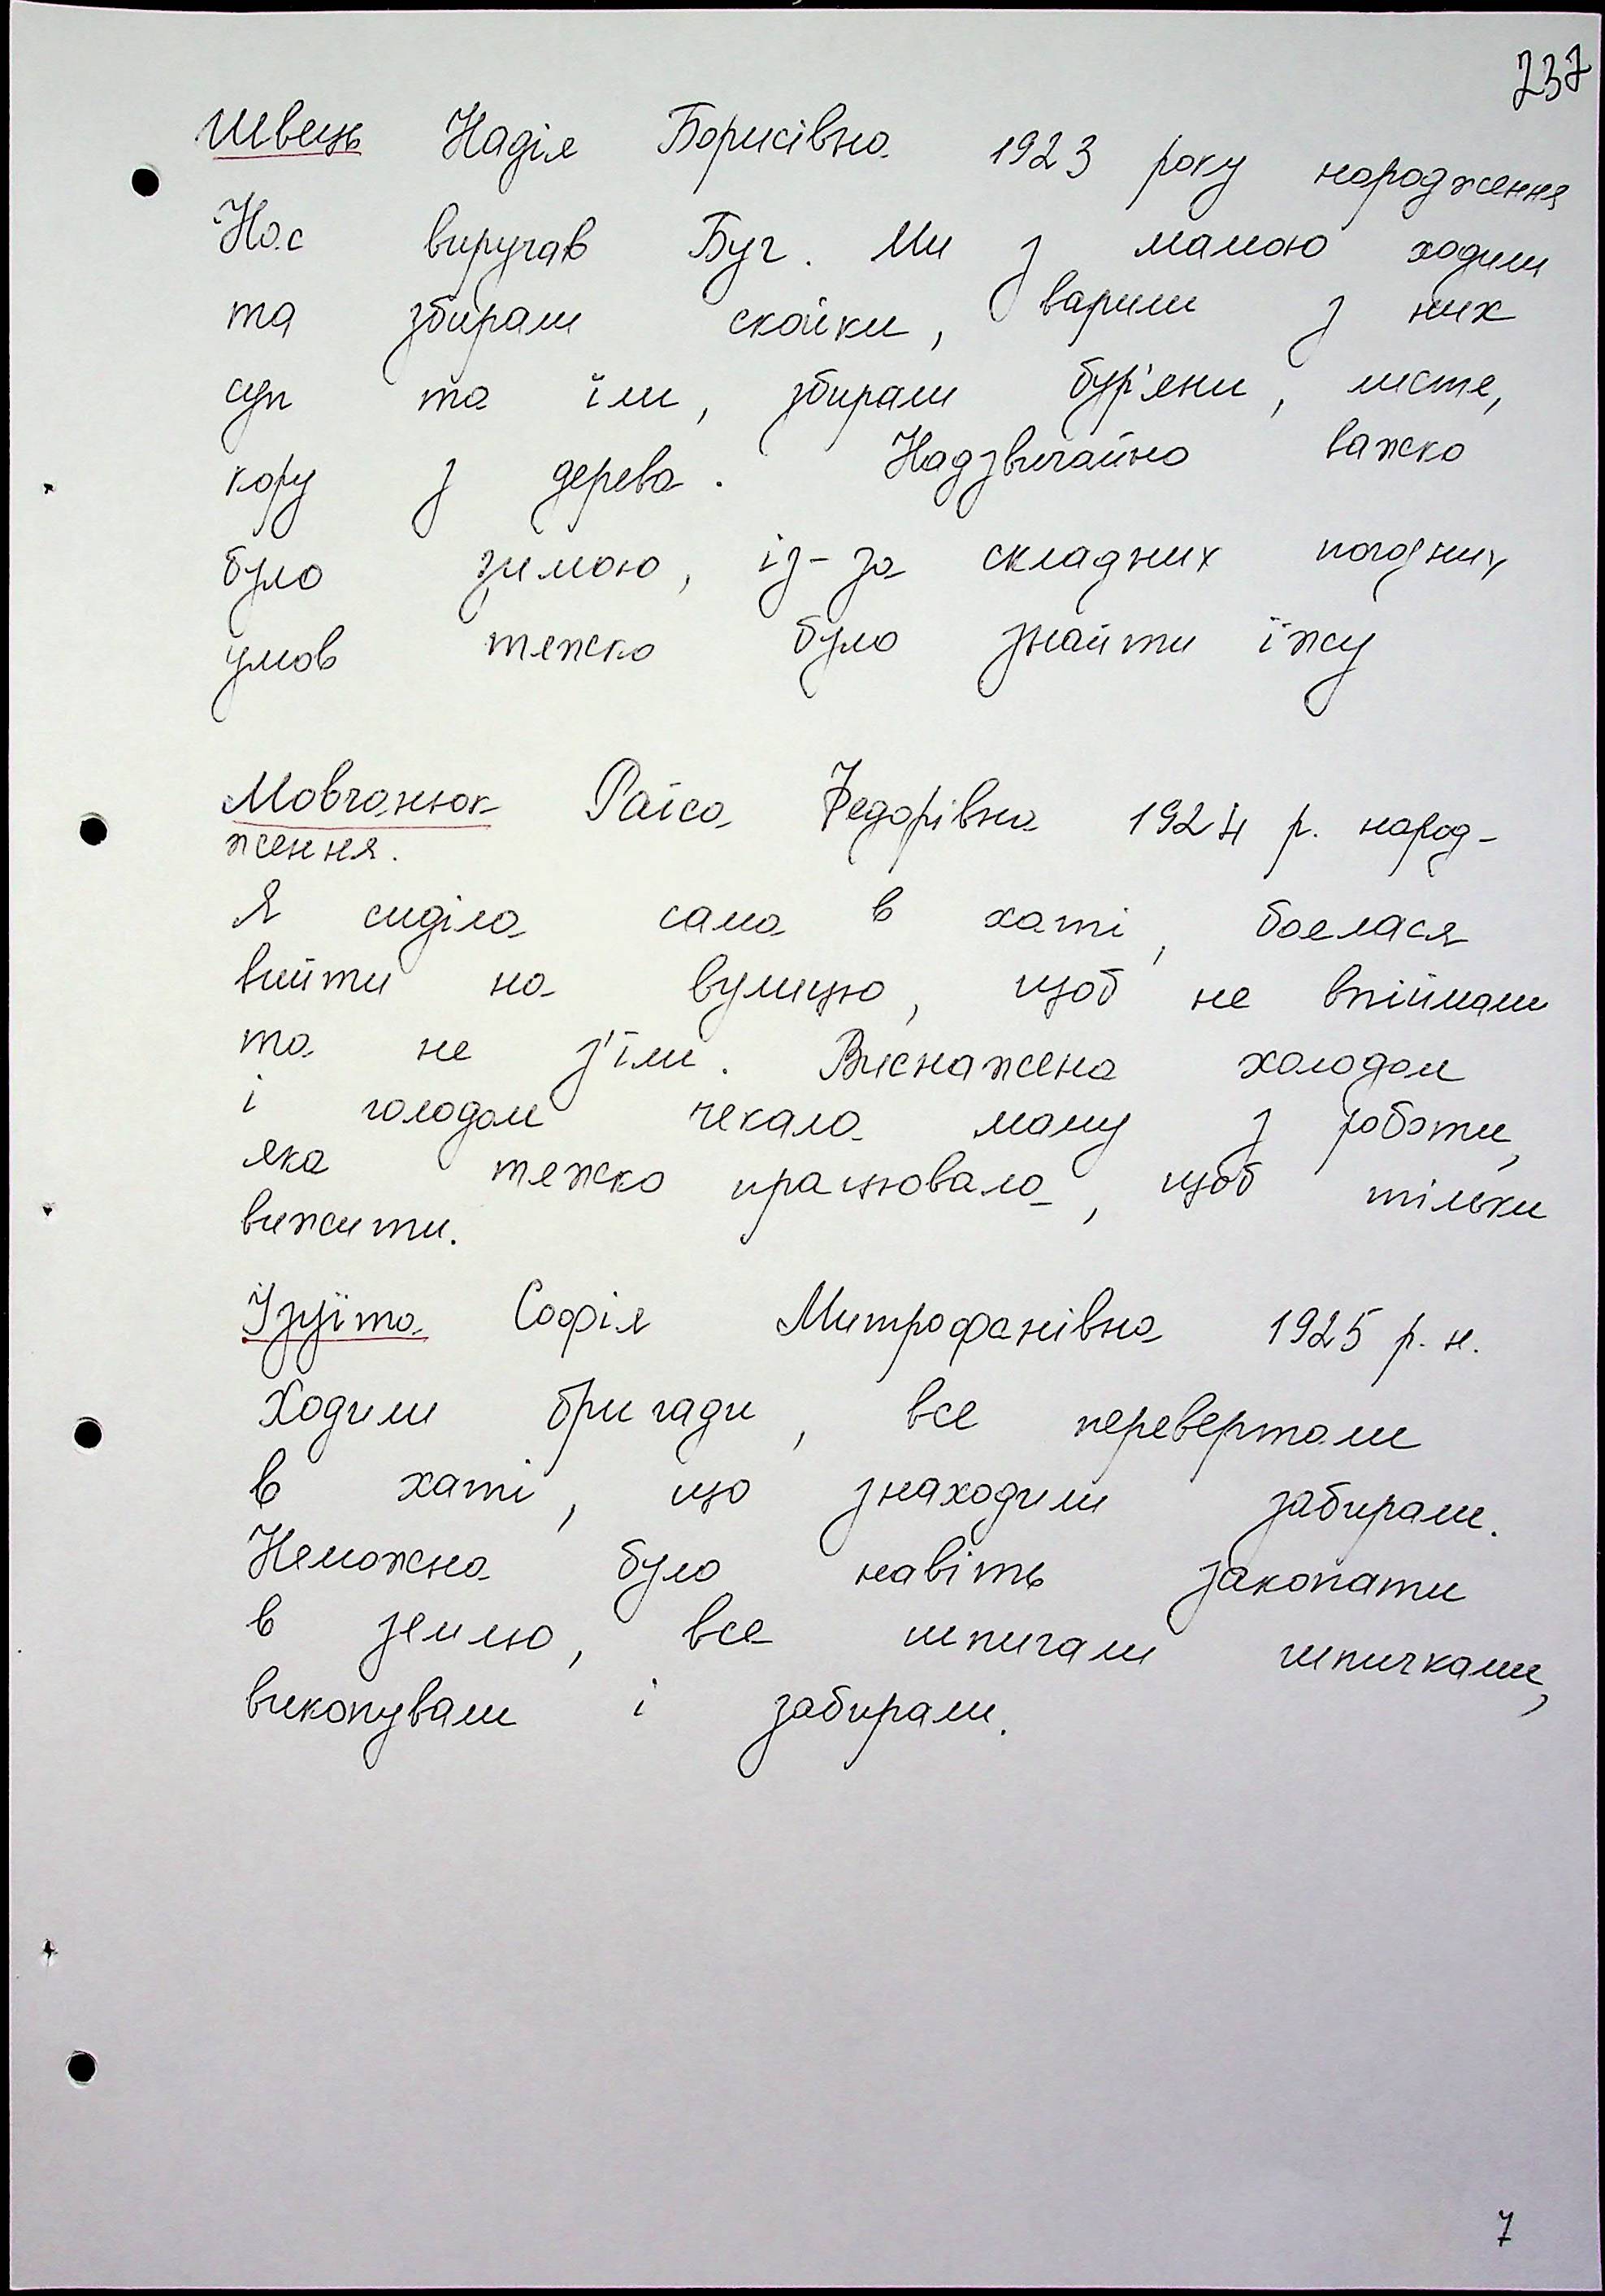 237
Швець Надія Борисівна 1923 року народження
Нас виручав Буг. Ми з мамою ходили
та збирали скойки, варили з них
суп та їли, збирали бур'яни, листя,
кору з дерева. Надзвичайно важко
було зимою, із-за складних погодних
умов тяжко було знайти їжу
Мовчанюк Раїса Федорівна 1924 р. народ-
ження.
Я сиділа сама в хаті, боялася
вийти на вулицю, щоб не впіймали
та не з'їли. Виснажена холодом
і голодом чекала маму з роботи,
яка тяжко працювала, щоб тільки
вижити.
Ізуїта Софія Митрофанівна 1925 р. н.
Ходили бригади, все перевертали
в хаті, що знаходили забирали.
Неможна було навіть закопати
в землю, все шпигали шпичками,
викопували і забирали.
7